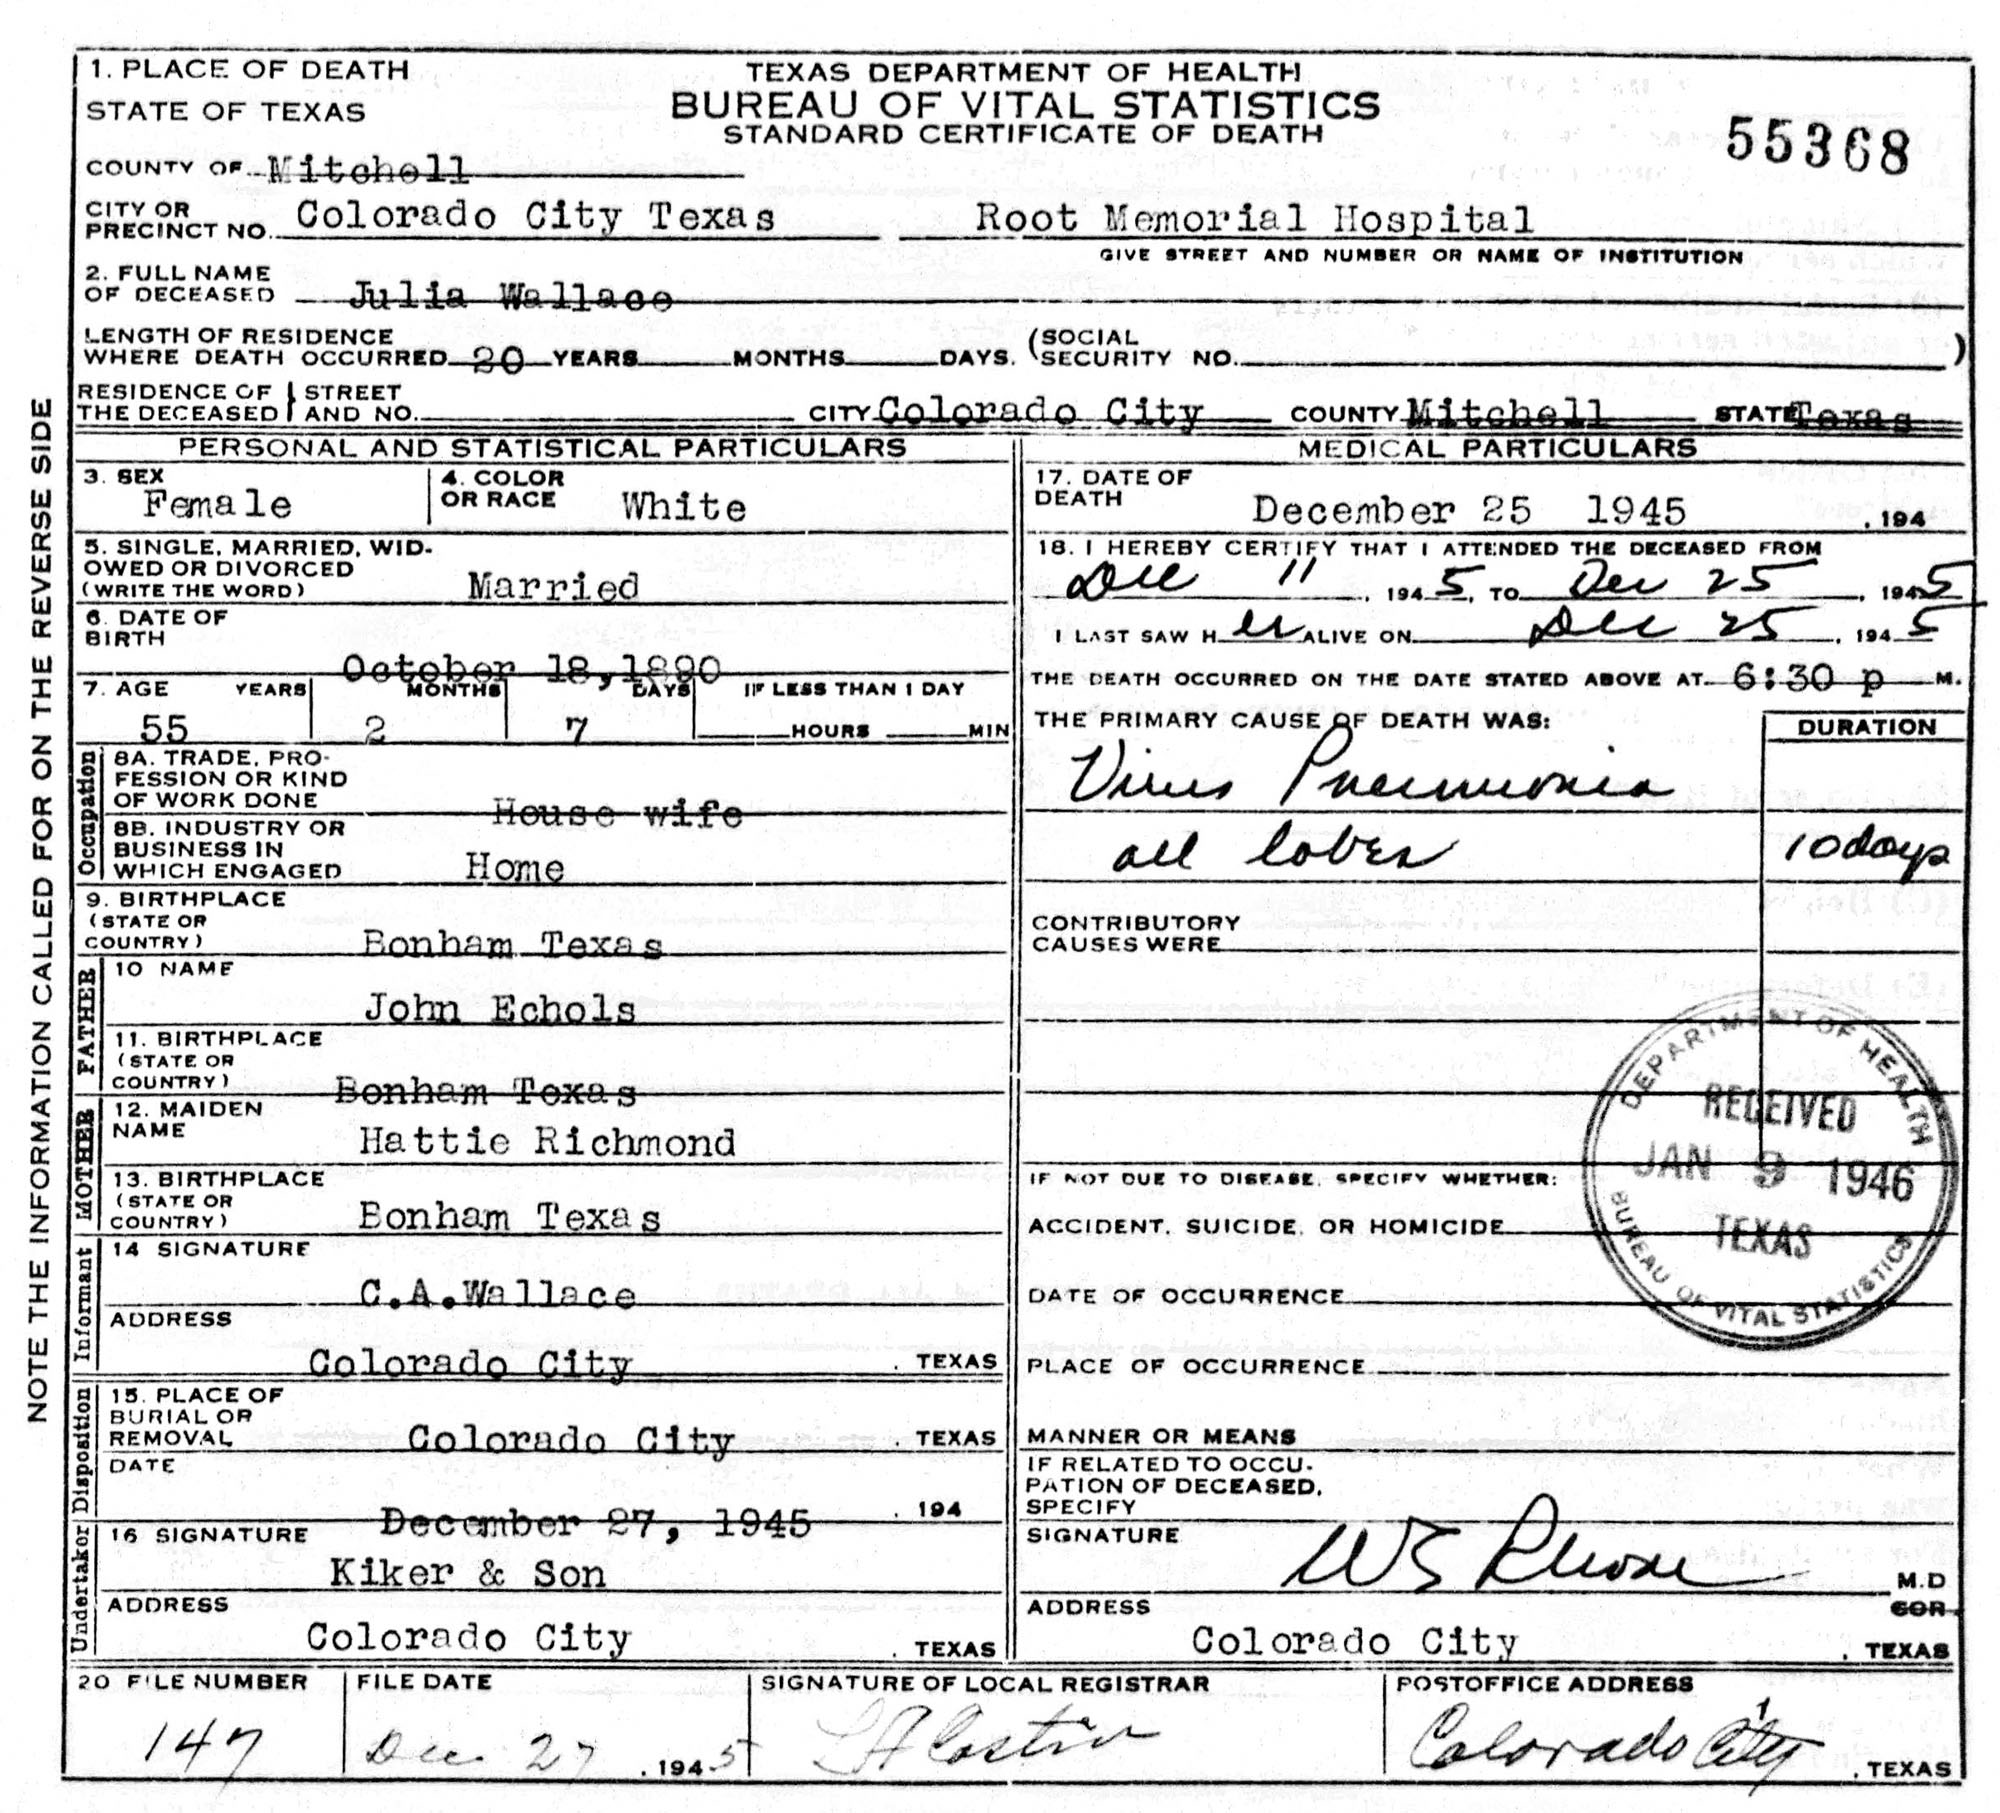 1. PLACE OF DEATH
STATE OF TEXAS
TEXAS DEPARTMENT OF HEALTH
BUREAU OF VITAL STATISTICS
STANDARD CERTIFICATE OF DEATH
55368
COUNTY OF Mitchell
CITY OR
PRECINCT NO. Colorado City Texas Root Memorial Hospital
GIVE STREET AND NUMBER OR NAME OF INSTITUTION
2. FULL NAME
OF DECEASED Julia Wallace
LENGTH OF RESIDENCE
WHERE DEATH OCCURRED 20 YEARS MONTHS DAYS. (SOCIAL
SECURITY NO. )
RESIDENCE OF
THE DECEASED } STREET
AND NO. CITY Colorado City COUNTY Mitchell STATE Texas
NOTE THE INFORMATION CALLED FOR ON THE REVERSE SIDE
PERSONAL AND STATISTICAL PARTICULARS
3. SEX
Female
4. COLOR
OR RACE White
5. SINGLE, MARRIED, WID-
OWED OR DIVORCED
(WRITE THE WORD) Married
6. DATE OF
BIRTH
October 18, 1890
7. AGE YEARS MONTHS DAYS IF LESS THAN 1 DAY
55 2 7 HOURS MIN
Occupation
8A. TRADE, PRO-
FESSION OR KIND
OF WORK DONE House wife
8B. INDUSTRY OR
BUSINESS IN
WHICH ENGAGED Home
9. BIRTHPLACE
(STATE OR
COUNTRY) Bonham Texas
FATHER
10 NAME
John Echols
11. BIRTHPLACE
(STATE OR
COUNTRY) Bonham Texas
MOTHER
12. MAIDEN
NAME Hattie Richmond
13. BIRTHPLACE
(STATE OR
COUNTRY) Bonham Texas
Informant
14 SIGNATURE
C.A.Wallace
ADDRESS
Colorado City . TEXAS
Disposition
15. PLACE OF
BURIAL OR
REMOVAL Colorado City . TEXAS
DATE
December 27, 1945 . 194
Undertaker
16 SIGNATURE
Kiker & Son
ADDRESS
Colorado City . TEXAS
MEDICAL PARTICULARS
17. DATE OF
DEATH December 25 1945 , 194
18. I HEREBY CERTIFY THAT I ATTENDED THE DECEASED FROM
Dec 11 , 1945, TO Dec 25 , 1945
I LAST SAW Her ALIVE ON Dec 25 , 1945
THE DEATH OCCURRED ON THE DATE STATED ABOVE AT 6:30 p M.
THE PRIMARY CAUSE OF DEATH WAS: DURATION
Virus Pneumonia
all lobes 10 days
CONTRIBUTORY
CAUSES WERE
DEPARTMENT OF HEALTH
RECEIVED
JAN 9 1946
TEXAS
BUREAU OF VITAL STATISTICS
IF NOT DUE TO DISEASE, SPECIFY WHETHER:
ACCIDENT, SUICIDE, OR HOMICIDE
DATE OF OCCURRENCE
PLACE OF OCCURRENCE
MANNER OR MEANS
IF RELATED TO OCCU-
PATION OF DECEASED,
SPECIFY
SIGNATURE
M.D
COR.
ADDRESS
Colorado City . TEXAS
20 FILE NUMBER
147
FILE DATE
Dec 27 , 1945
SIGNATURE OF LOCAL REGISTRAR
POSTOFFICE ADDRESS
Colorado City . TEXAS